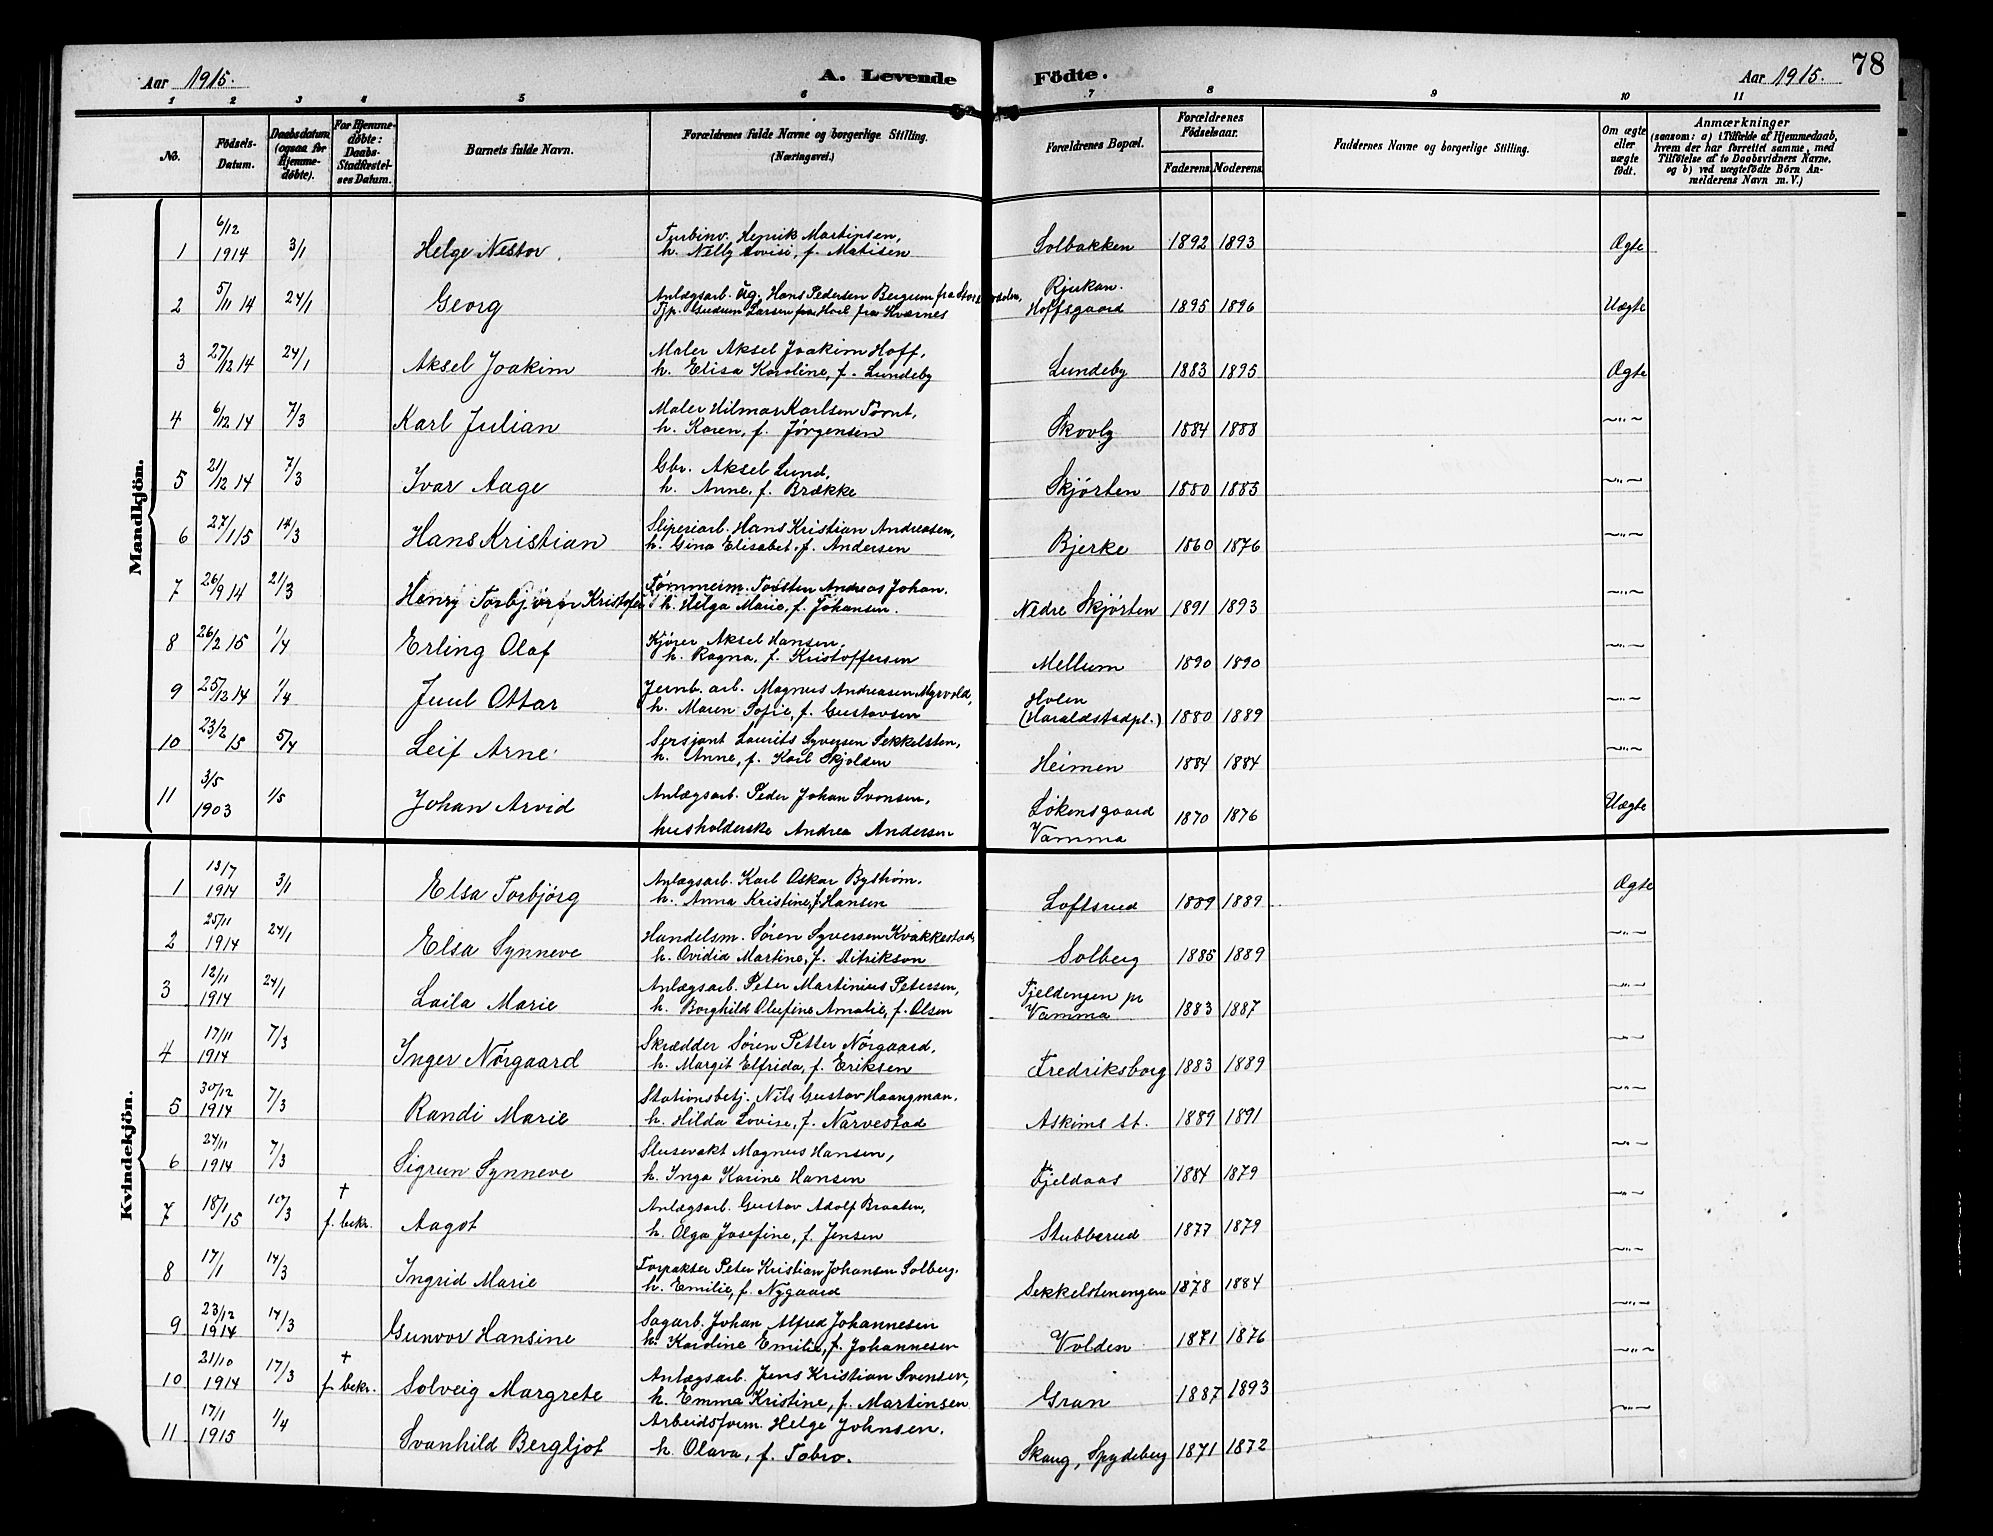 78
Aar 1915.
A. Levende Födte.
Aar 1915.
1 2 3 4 5 6 7 8 9 10 11
No.
Födsels-Datum.
Daabsdatum (ogsaa for Hjemme-døbte).
For Hjemme-døbte: Daabs-Stadfæstel-ses Datum.
Barnets fulde Navn.
Forældrenes fulde Navne og borgerlige Stilling. (Næringsvei.)
Forældrenes Bopæl.
Forældrenes Fødselsaar.
Faderens. Moderens.
Faddernes Navne og borgerlige Stilling.
Om ægte eller uægte født.
Anmærkninger
(saasom: a) i Tilfælde af Hjemmedaab, hvem der har forrettet samme, med Tilføielse af to Daabsvidners Navne, og b) ved uægtefødte Börn An-melderens Navn m. V.)
Mandkjön.
1 6/12 1914 3/1 Helge Nestor. Turbinv. Henrik Martinsen, h. Nelly Lovise, f. Matisen Solbakken 1892 1893 Ægte
2 5/11 14 24/1 Georg Anlægsarb. Ug. Hans Pedersen Bergum fra Pjp. Gudrun Larsen fra Kværnes Rjukan. Hoffsgaard 1895 1896 Uægte
3 27/12 14 24/1 Aksel Joakim Maler Aksel Joakim Hoff, h. Elisa Karoline, f. Lundeby Lundeby 1883 1895 Ægte
4 6/12 14 7/3 Karl Julian Maler Hilmar Karlsen h. Karen, f. Jørgensen Skovly 1884 1888 -"-
5 21/12 14 7/3 Ivar Aage Gbr. Aksel Lund, h. Anne, f. Brække Skjørten 1880 1883 -"-
6 27/1 15 14/3 Hans Kristian Sliperiarb. Hans Kristian Andreasen, h. Gina Elisabet, f. Andersen Bjerke 1860 1876 -"-
7 26/9 14 21/3 Henry Torbjørn Kristofer Tømmerm. Torsten Andreas Johan. h. Helga Marie, f. Johansen. Nedre Skjørten 1891 1893 -"-
8 26/2 15 1/4 Erling Olaf Kjører Aksel Hansen, h. Ragna, f. Kristoffersen Mellum 1890 1890 -"-
9 25/12 14 1/4 Juul Ottar Jernb. arb. Magnus Andreasen Myrvold, h. Maren Sofie, f. Gustavsen Holen (Haraldstadpl.) 1880 1889 -"-
10 23/2 15 5/4 Leif Arne Sersjant Laurits Syversen Sekkelsten, h. Anne, f. Karl Skjolden Heimen 1884 1884 -"-
11 3/5 1903 1/5 Johan Arvid Anlægsarb. Peder Johan Svensen, husholderske Andrea Andersen Løkensgaard Vamma 1870 1876 Uægte
Kvindekjön.
1 13/7 1914 3/1 Elsa Torbjörg Anlægsarb. Karl Oskar Bystrøm. h. Anna Kristine, f. Hansen Loftsrud 1889 1889 Ægte
2 25/11 1914 24/1 Elsa Synneve Handelsm. Søren Syversen Kvakkestad, h. Ovidia Martine, f. Didrikson Solberg 1885 1889 -"-
3 12/11 1914 24/1 Laila Marie Anlægsarb. Peter Martinius Petersen, h. Borghild Olufine Amalie, f. Olsen Fjeldengen pr Vamma 1883 1887 -"-
4 17/11 1914 7/3 Inger Nørgaard Skrædder Søren Petter Nørgaard, h. Margit Elfrida, f. Eriksen Fredriksborg 1883 1889 -"-
5 30/12 1914 7/3 Randi Marie Stationsbetj. Nils Gustav Haangman, h. Hilda Lovise, f. Narvestad Askims st. 1889 1891 -"-
6 24/11 1914 7/3 Sigrun Synneve Slusevakt Magnus Hansen, h. Inga Karine Hansen Fjeldaas 1884 1879 -"-
7 18/1 15 10/3 † f. bekr. Aagot Anlægsarb. Gustav Adolf Braaten, h. Olga Josefine, f. Jensen Stubberud 1877 1879 -"-
8 17/1 14/3 Ingrid Marie Forpakter Peter Kristian Johansen Solberg. h. Emilie, f. Nygaard Sekkelstenengen 1878 1884 -"-
9 23/12 1914 14/3 Gunvor Hansine Sagarb. Johan Alfred Johannesen h. Karoline Emilie, f. Johannesen Volden 1871 1876 -"-
10 21/10 1914 17/3 † f. bekr. Solveig Margrete Anlægsarb. Jens Kristian Svensen, h. Emma Kristine, f. Martinsen Gran 1887 1893 -"-
11 17/1 1915 1/4 Svanhild Bergljot Arbeidsform. Helge Johnsen. h. Olava, f. Tobro. Skaug, Spydeberg 1871 1872 -"-